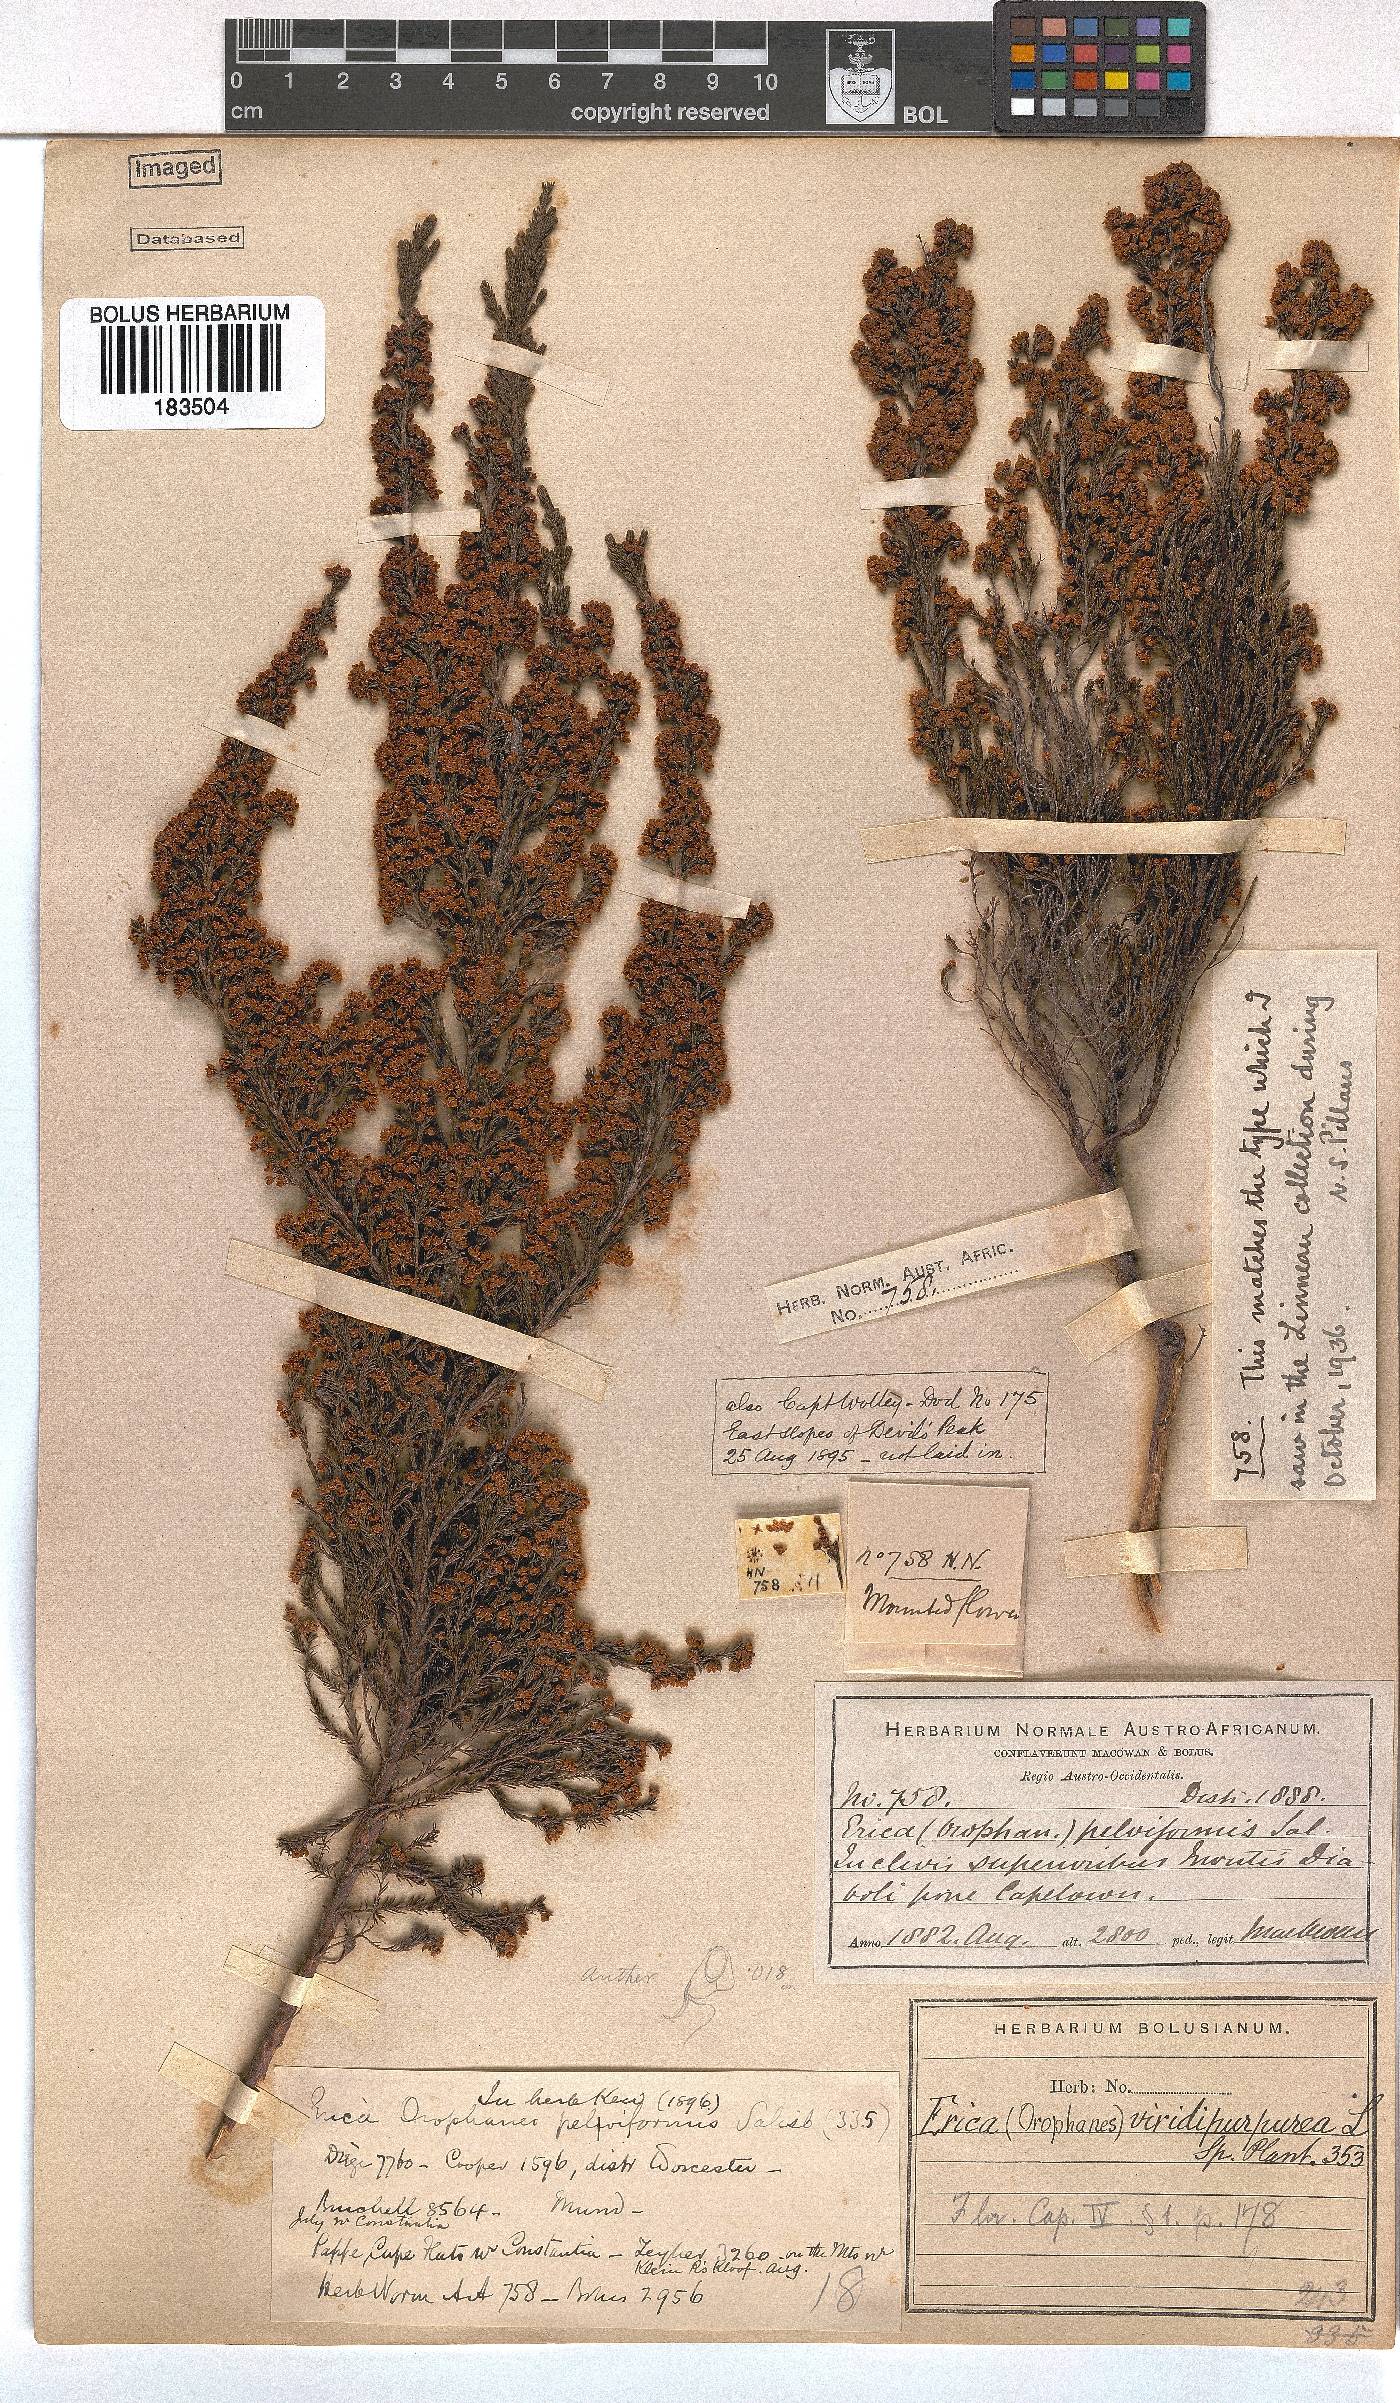 0 1 2 3 4 5 6 7 8 9 10
cm copyright reserved
BOL
Imaged
Databased
BOLUS HERBARIUM
183504
758. This matches the type which I
saw in the Linnean collection during
October, 1936. N. S. Pillans
HERB. NORM. AUST. AFRIC.
No. 758.
also Capt Wolley-Dod No 175
East slopes of Devil's Peak
25 Aug 1895 - not laid in.
HN
758
No 758 H.N.
Mounted flower
HERBARIUM NORMALE AUSTRO-AFRICANUM.
CONFLAVERUNT MACOWAN & BOLUS.
Regio Austro-Occidentalis.
No. 758. Distr. 1888.
Erica (Orophan.) pelviformis Sal.
In clivis superioribus Montis Dia-
boli prope Capetown.
Anno 1882. Aug. alt. 2800 ped., legit MacOwan
anther .018
HERBARIUM BOLUSIANUM.
Herb: No.
Erica (Orophanes) viridipurpurea L
Sp. Plant. 353
Flor. Cap. IV. §1. p. 178
213
335
In herb Kew (1896)
Erica Orophanes pelviformis Salisb (335)
Drège 7760 - Cooper 1596, distr Worcester -
Burchell 8564 - Mund -
July nr Constantia
Pappe, Cape Flats nr Constantia - Zeyher 3260 - on the Mts nr
Klein Rs Kloof. Aug.
Herb Norm A A 758 - Bolus 2956
18